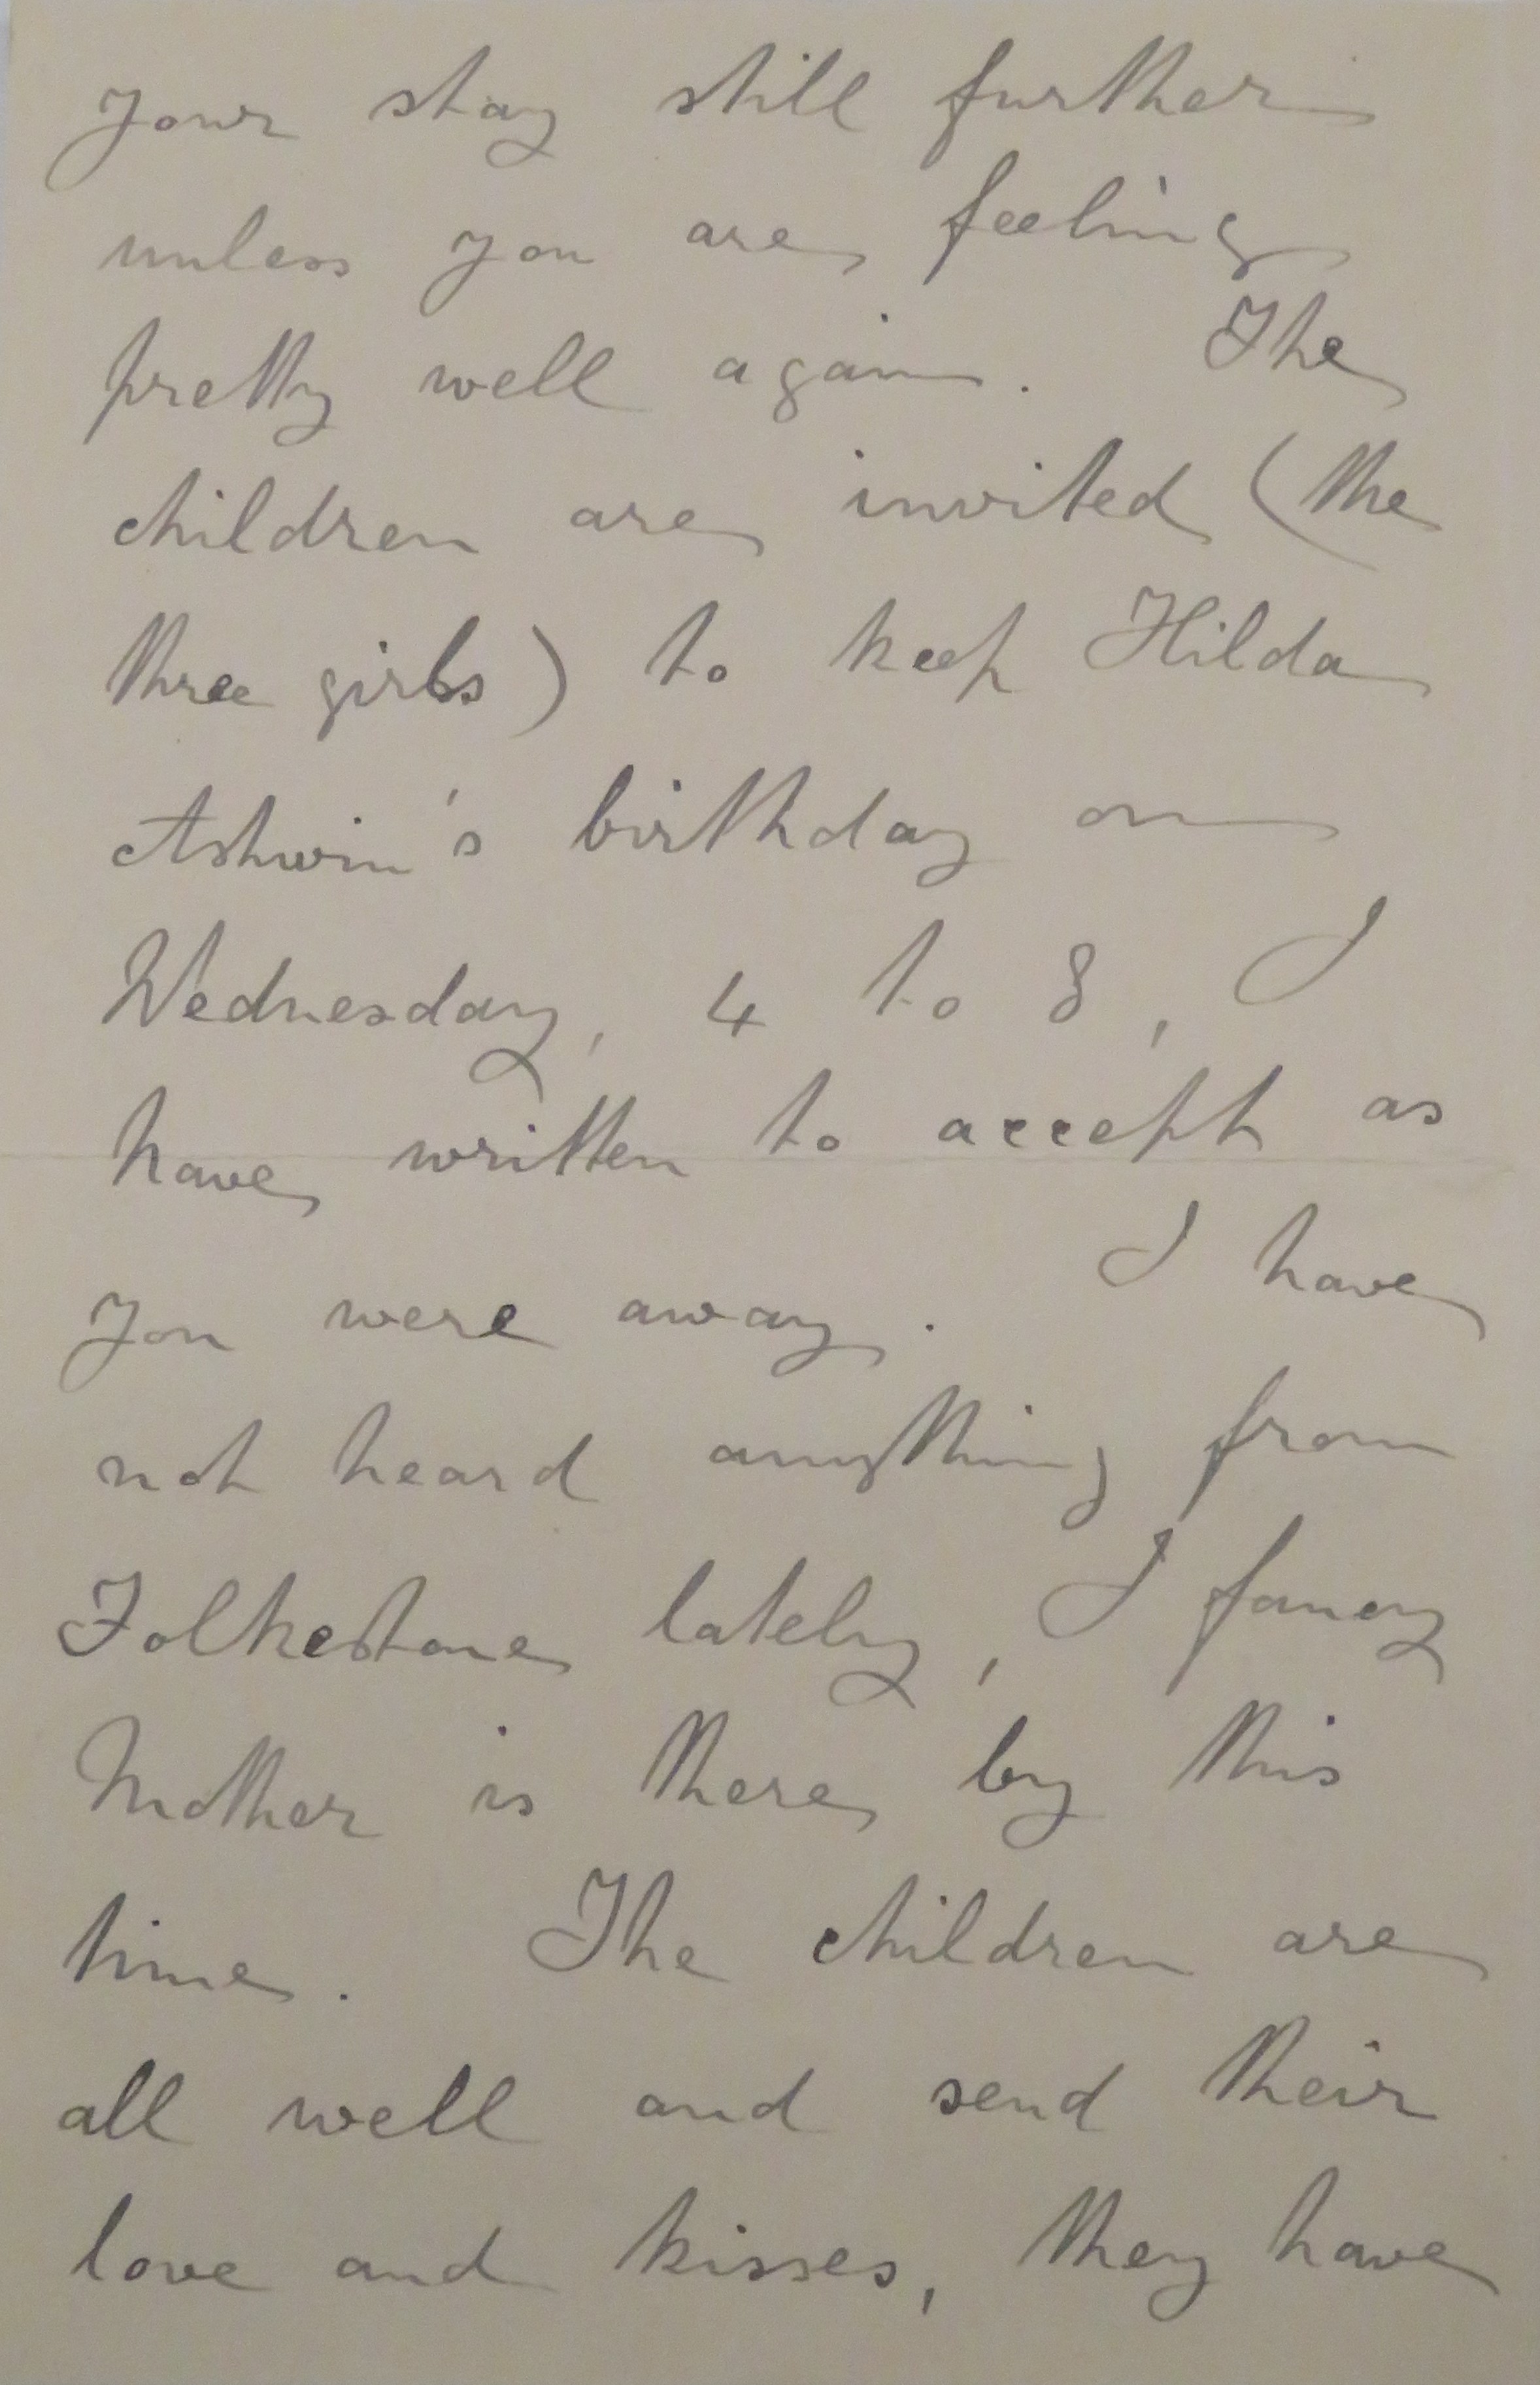 your stay still further
unless you are feeling
pretty well again. The
children are invited (the
three girls) to keep Hilda
Ashwin's birthday on
Wednesday, 4 to 8, I
have written to accept as
you were away. I have
not heard anything from
Folkestone lately, I fancy
Mother is there by this
time. The children are
all well and send their
love and kisses, they have